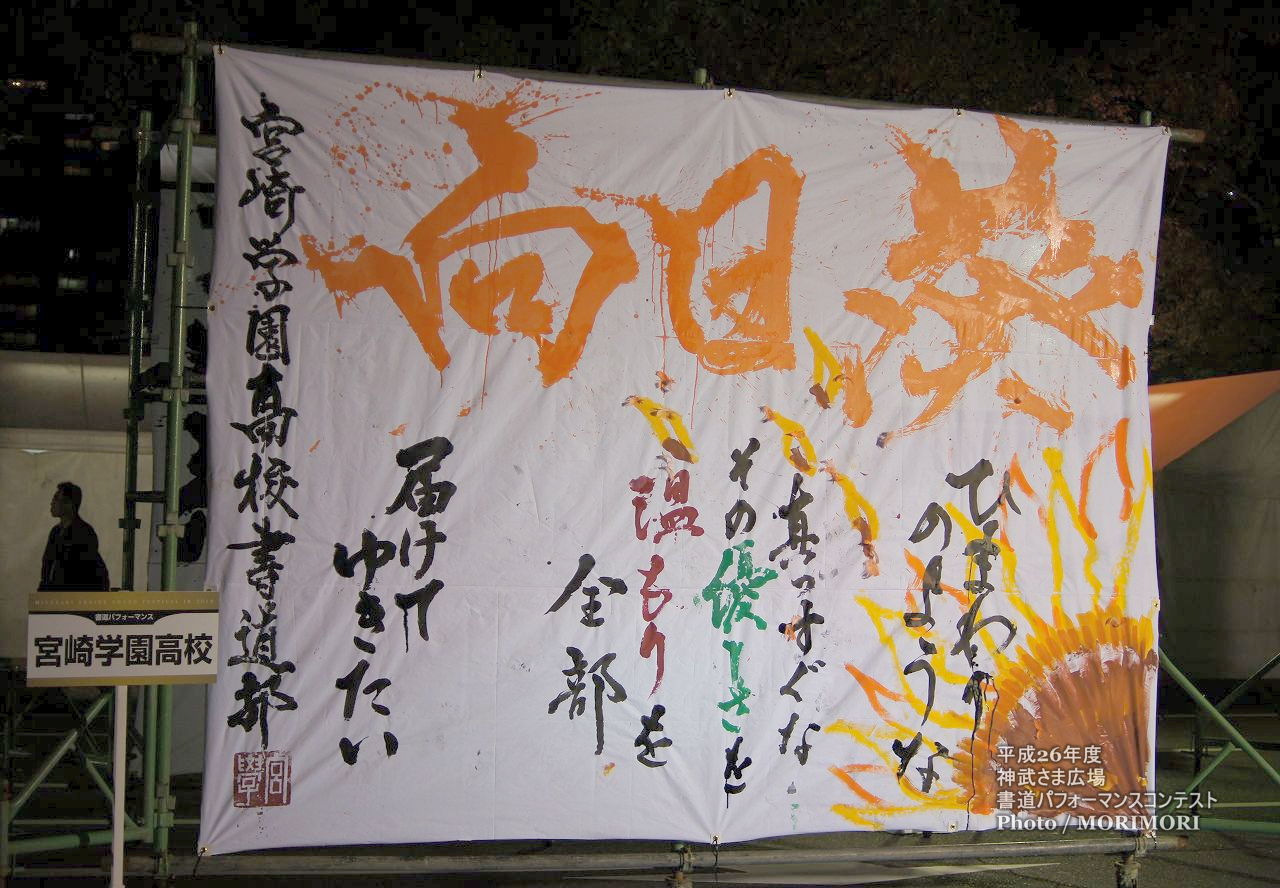 向日葵
ひまわり
のような
真っすぐな
その優しさと
温もりを
全部
届けて
ゆきたい
宮崎学園高校書道部
宮學
書道パフォーマンス
宮崎学園高校
平成26年度
神武さま広場
書道パフォーマンスコンテスト
Photo / MORIMORI